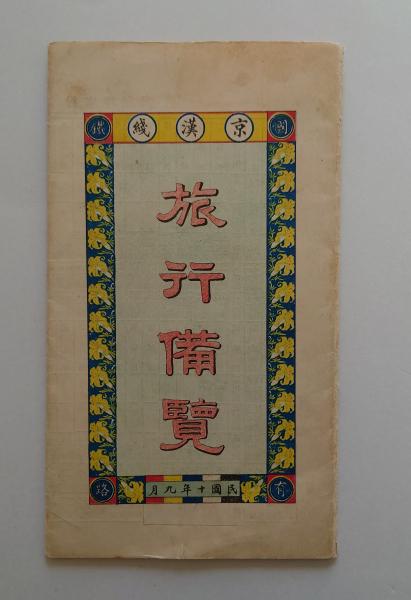 國有鐵路
京漢綫
旅行備覽
民國十年九月